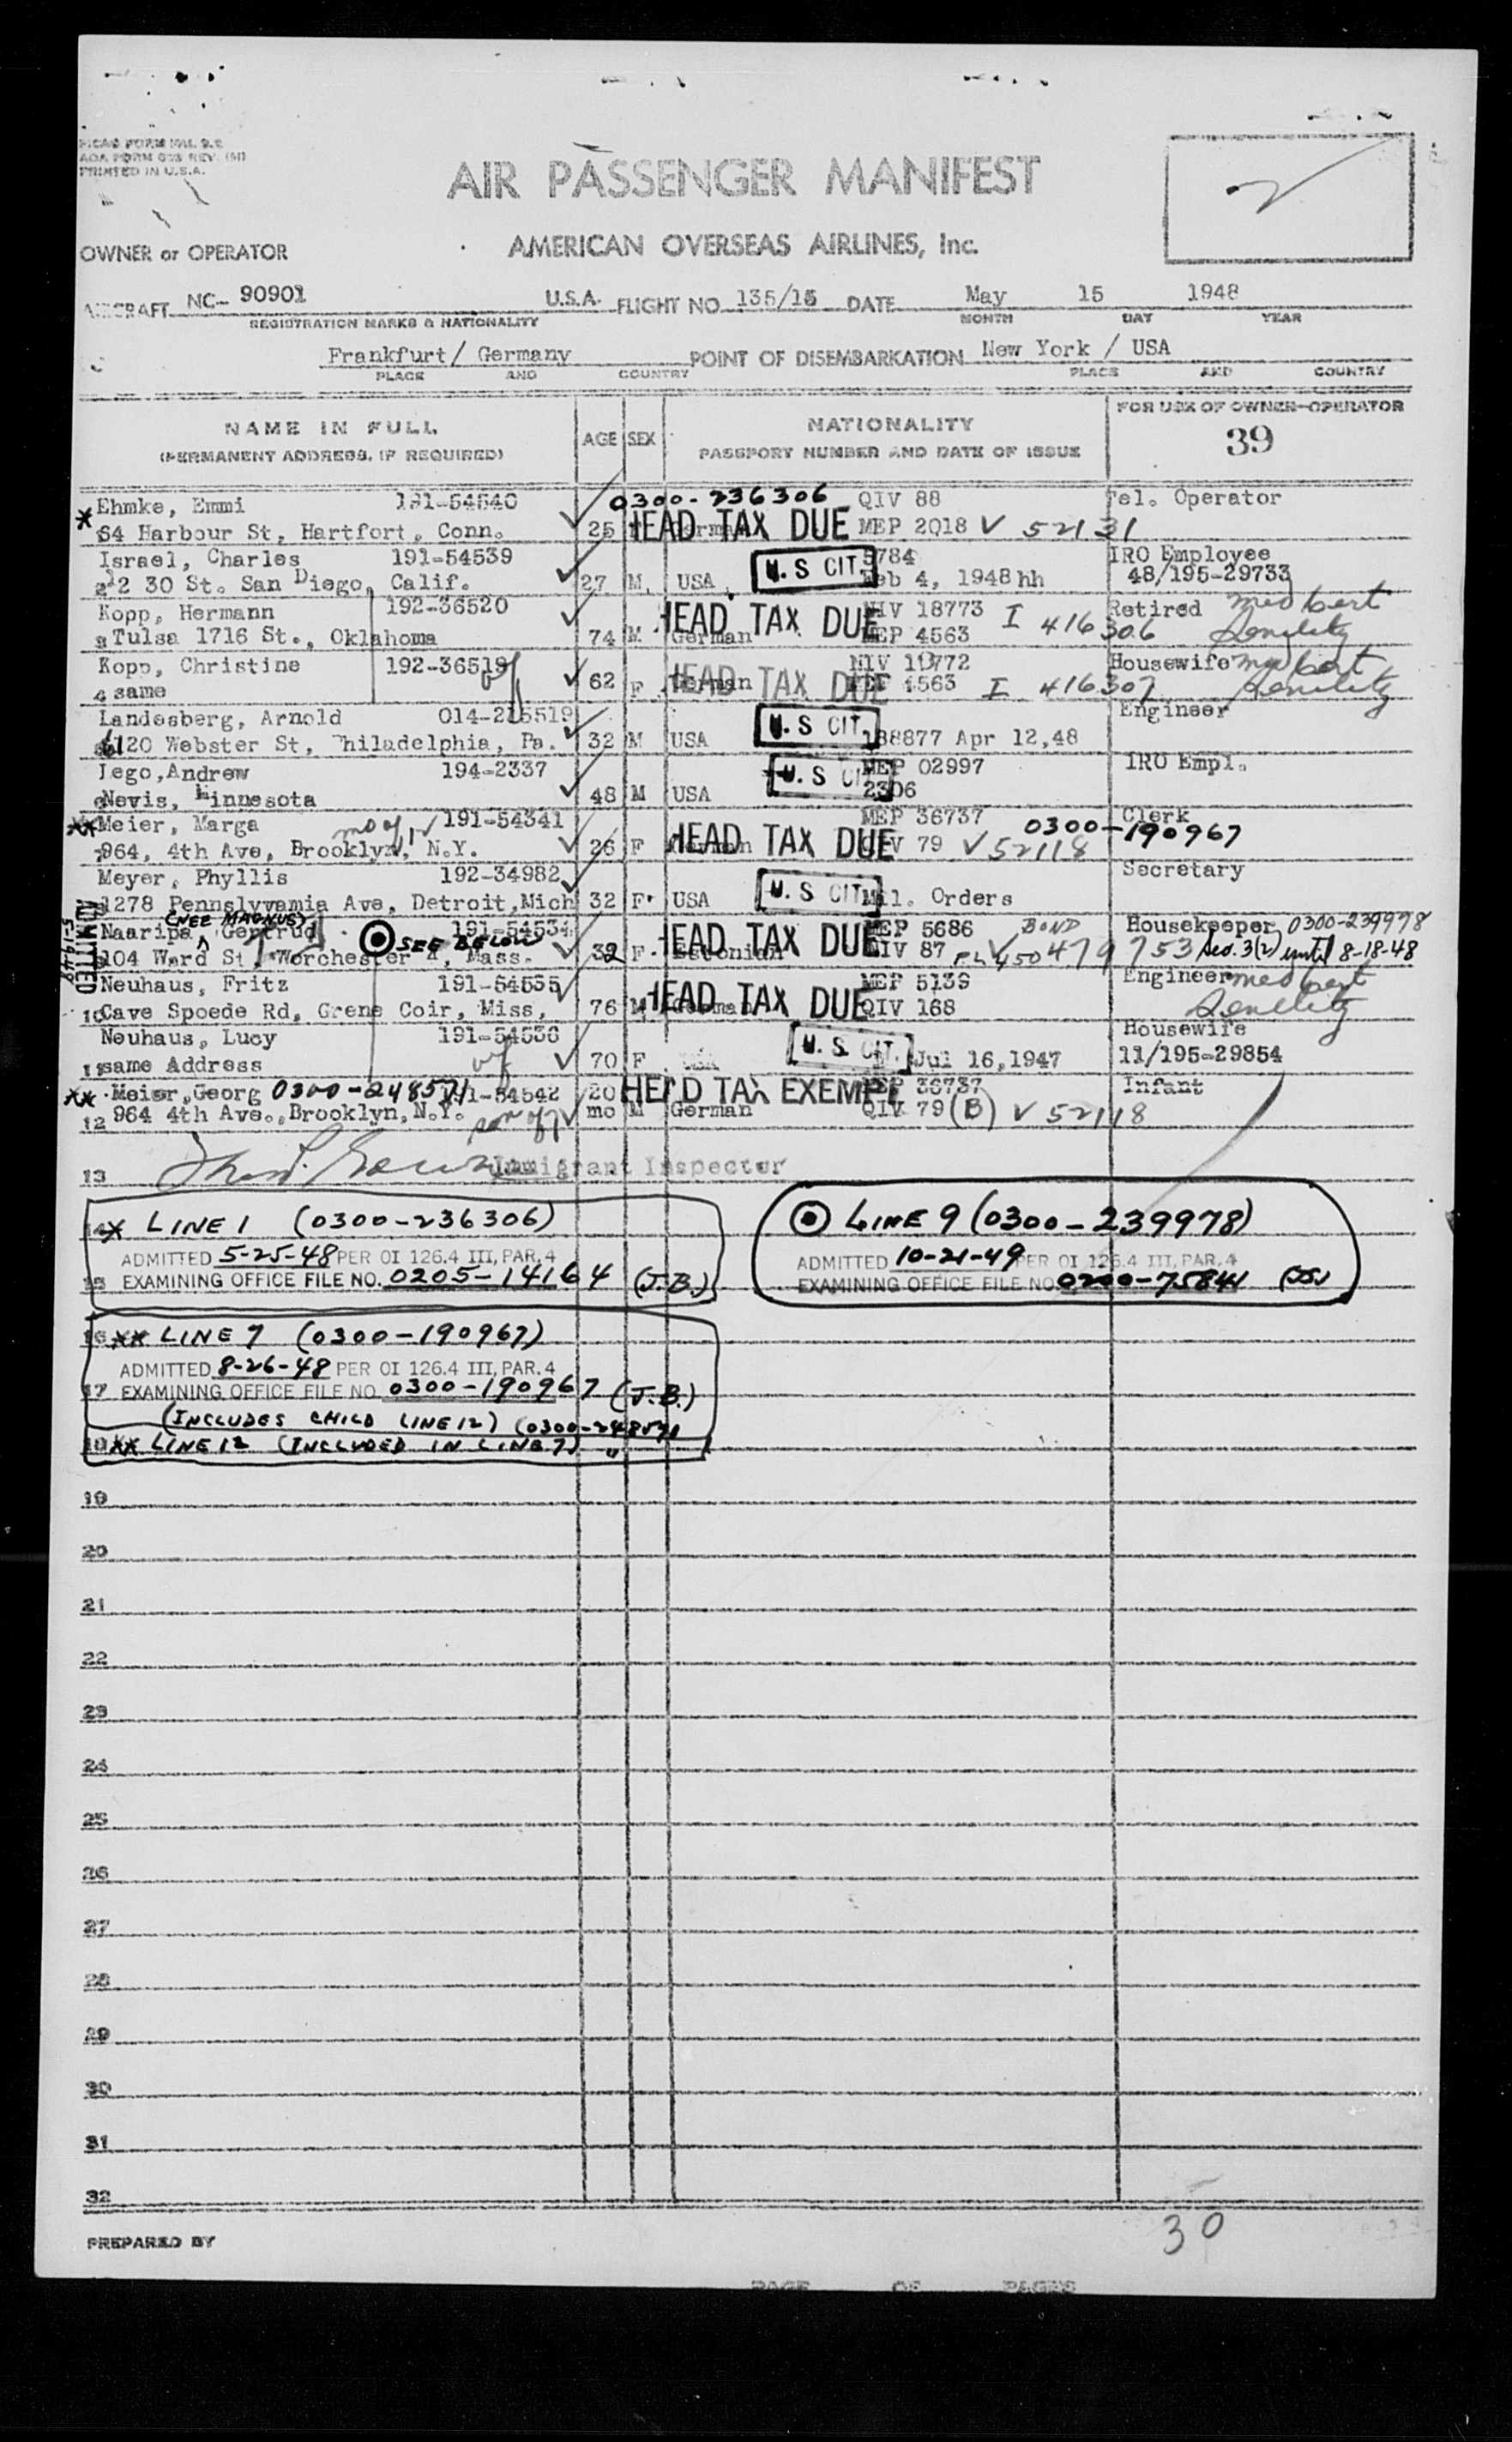 ICAO FORM
AOA FORM REV.
PRINTED IN U.S.A.
AIR PASSENGER MANIFEST
OWNER or OPERATOR
AMERICAN OVERSEAS AIRLINES, Inc.
AIRCRAFT NC- 90901 U.S.A. FLIGHT NO. 135/15 DATE May 15 1948
REGISTRATION MARKS & NATIONALITY MONTH DAY YEAR
Frankfurt/ Germany POINT OF DISEMBARKATION New York / USA
PLACE AND COUNTRY PLACE AND COUNTRY
NAME IN FULL AGE SEX NATIONALITY FOR USE OF OWNER-OPERATOR
(PERMANENT ADDRESS, IF REQUIRED) PASSPORT NUMBER AND DATE OF ISSUE 39
Ehmke, Emmi 191-54540 0300-236306 QIV 88 Tel. Operator
* 64 Harbour St, Hartfort, Conn. 25 HEAD TAX DUE MEP 2018 V 52131
Israel, Charles 191-54539 U.S CIT. 5784 IRO Employee
2 30 St. San Diego, Calif. 27 M. USA Feb 4, 1948 hh 48/195-29733
Kopp, Hermann 192-36520 HEAD TAX DUE NIV 18773 I 416306 Retired med cert
3 Tulsa 1716 St., Oklahoma 74 M German MEP 4563 Senility
Kopp, Christine 192-36519 wf NIV 18772 Housewife med cert
4 same 62 F German HEAD TAX DUE MEP 4563 I 416307 Senility
Landesberg, Arnold U.S CIT. Engineer
Webster St, Philadelphia, Pa. 32 M USA 188877 Apr 12,48
Lego,Andrew 194-2337 U.S CIT MEP 02997 IRO Empl.
6 Nevis, Minnesota 48 M USA 2306
** Meier, Marga mo of 12 191-54341 MEP 36737 Clerk 0300-190967
964, 4th Ave, Brooklyn, N.Y. 26 F German HEAD TAX DUE QIV 79 V 52118
Meyer, Phyllis 192-34982 Secretary
1278 Pennslyvamia Ave, Detroit,Mich 32 F USA U.S CIT. Mil. Orders
ADMITTED
(NEE MAGNUS)
Naaripa, Gertrud SEE BELOW 191-54534 HEAD TAX DUE MEP 5686 BOND Housekeeper 0300-239978
104 Ward St, Worchester 4, Mass. 32 F Estonian QIV 87 Sec. 3(2) until 8-18-48
Neuhaus, Fritz 191-54535 HEAD TAX DUE MEP 5139 Engineer med cert
10 Cave Spoede Rd, Grene Coir, Miss, 76 M German QIV 168 Senility
Neuhaus, Lucy 191-54536 wf U.S CIT. Housewife
11 same Address 70 F USA Jul 16,1947 11/195-29854
** Meier,Georg 0300-248571 191-54542 20 HEAD TAX EXEMPT MEP 36737 Infant
12 964 4th Ave.,Brooklyn,N.Y. son of 7 mo M German QIV 79 (B) V 52118
13 Immigrant Inspector
14 * LINE 1 (0300-236306)
ADMITTED 5-25-48 PER OI 126.4 III, PAR. 4
15 EXAMINING OFFICE FILE NO. 0205-14164 (J.B.)
LINE 9 (0300-239978)
ADMITTED 10-21-49 PER OI 126.4 III, PAR. 4
EXAMINING OFFICE FILE NO 0200-75841
16 ** LINE 7 (0300-190967)
ADMITTED 8-26-48 PER OI 126.4 III, PAR. 4
17 EXAMINING OFFICE FILE NO. 0300-190967 (J.B.)
(INCLUDES CHILD LINE 12) (0300-248571
18 ** LINE 12 (INCLUDED IN LINE 7) "
19
20
21
22
23
24
25
26
27
28
29
30
31
32
30
PREPARED BY
PAGE OF PAGES